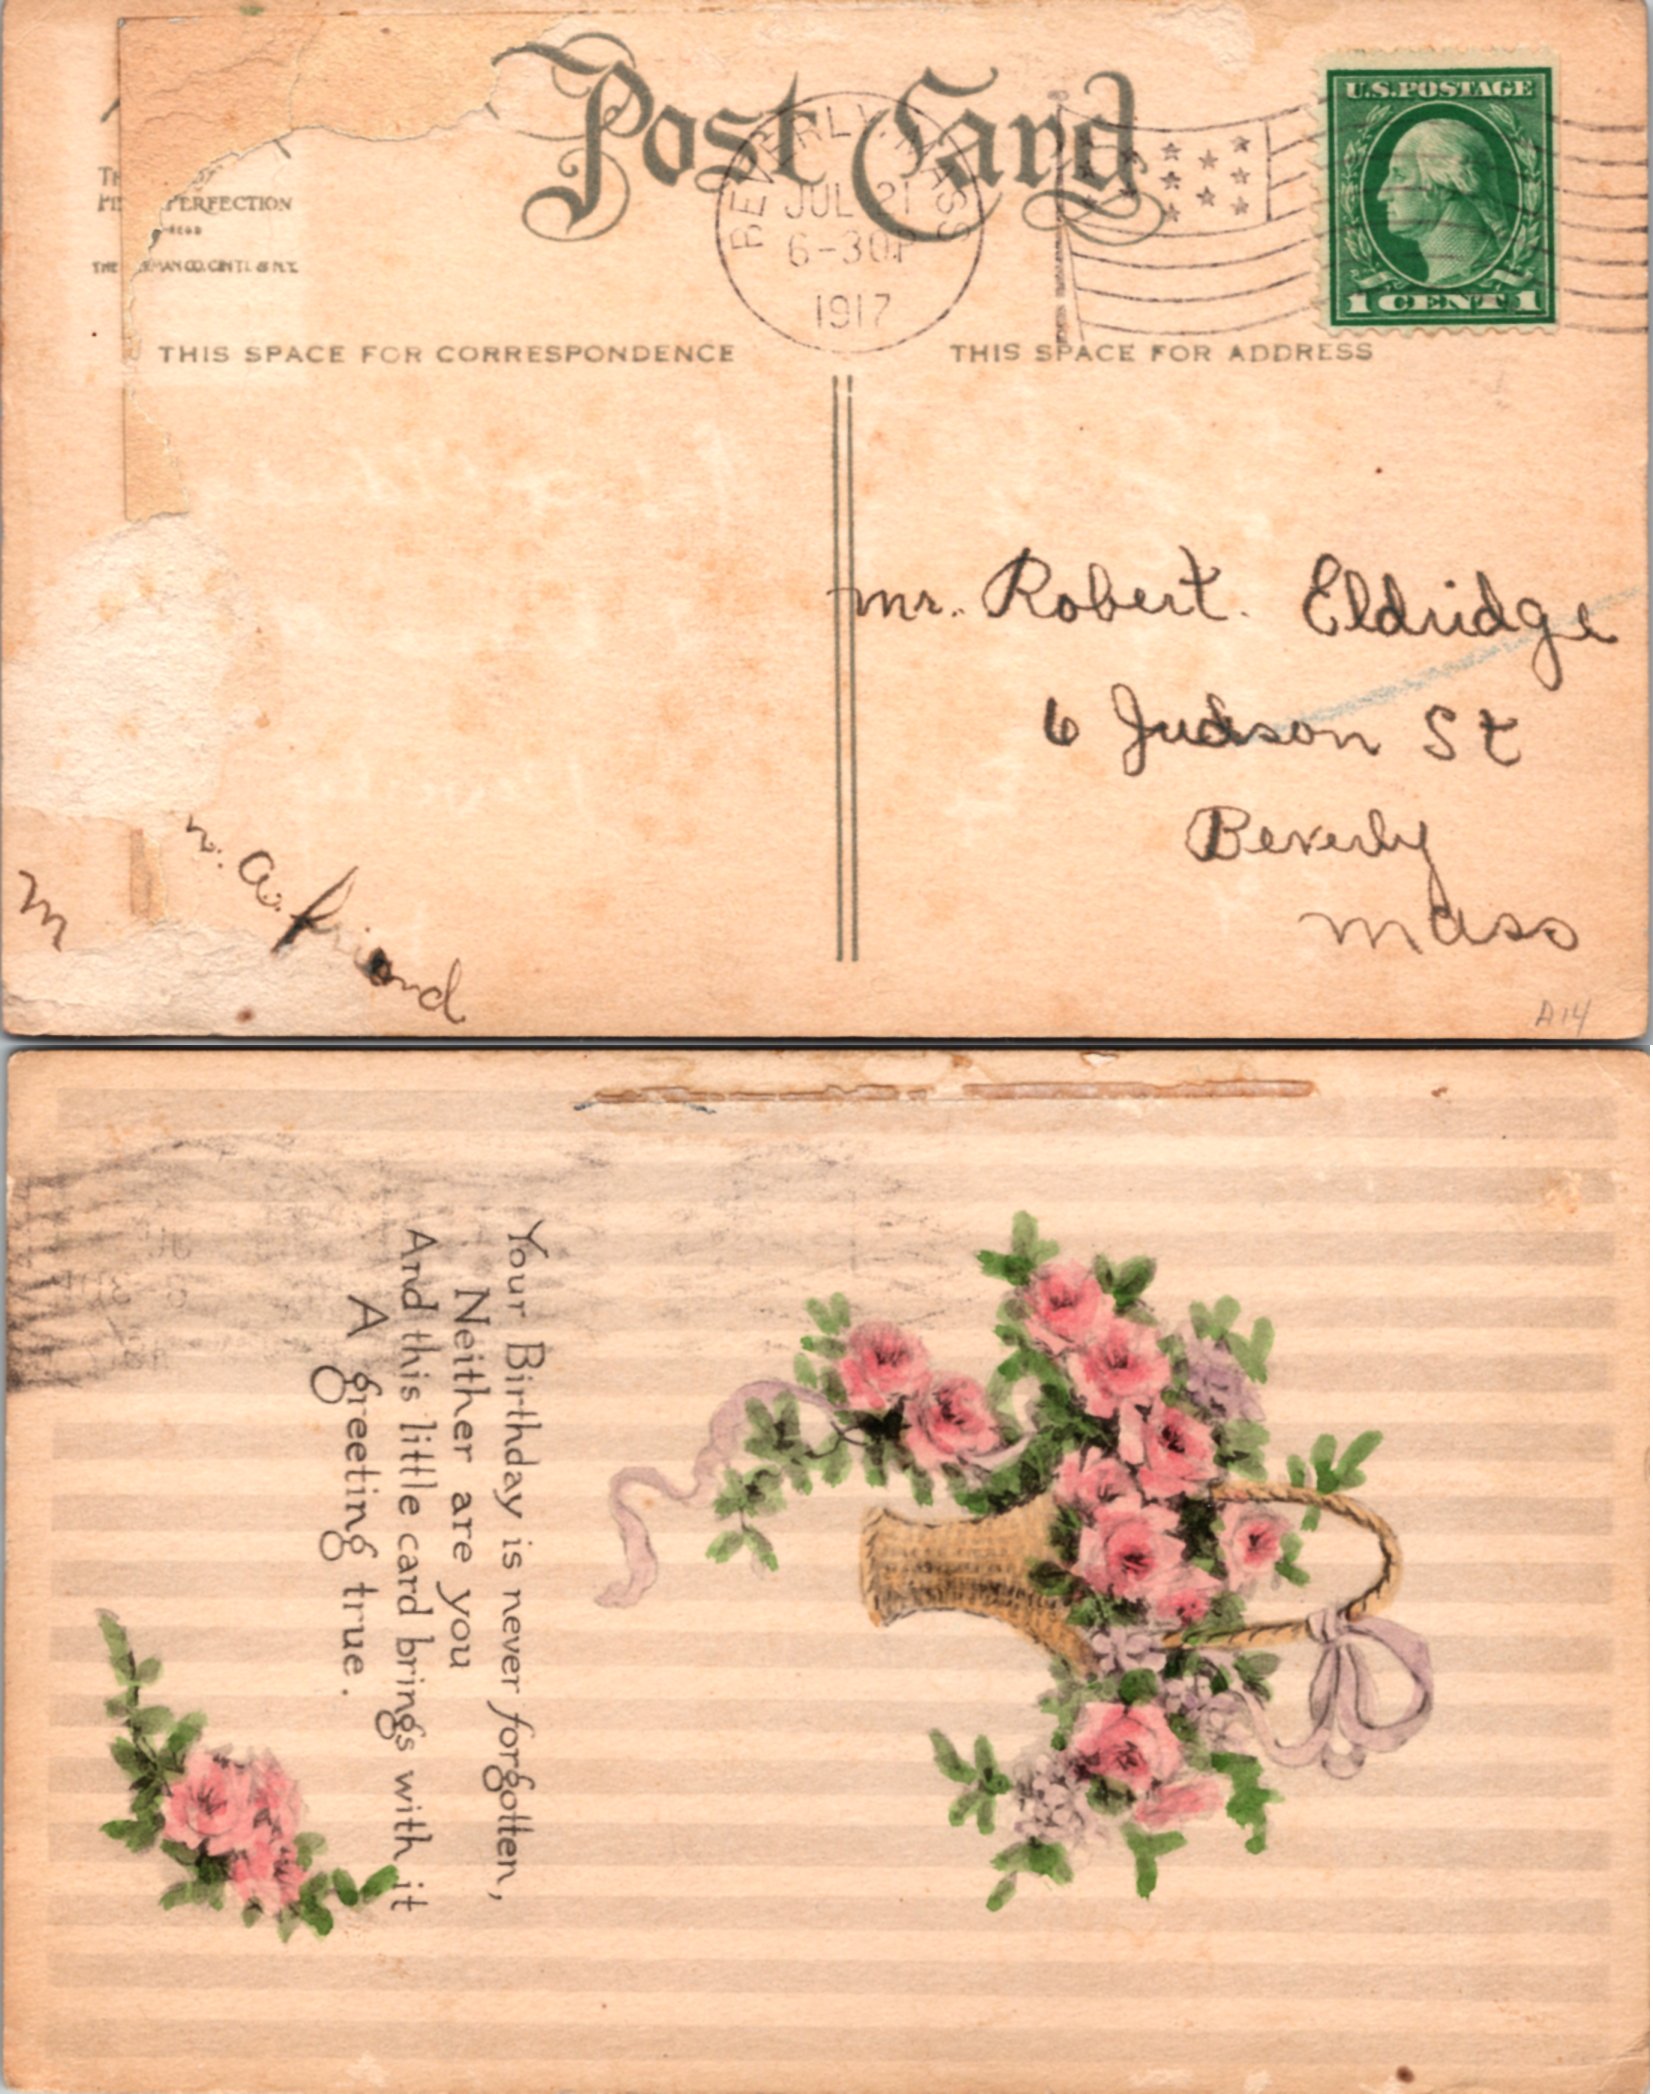 Post Card
U.S. POSTAGE
1 CENT 1
BEVERLY, MASS
JUL 21
6-30P
1917
PERFECTION
THE
CO. CINTI. & N.Y.
THIS SPACE FOR CORRESPONDENCE
THIS SPACE FOR ADDRESS
Mr. Robert. Eldridge
6 Judson St
Beverly
Mass
M
a. friend
A14
Your Birthday is never forgotten,
Neither are you
And this little card brings with it
A greeting true.